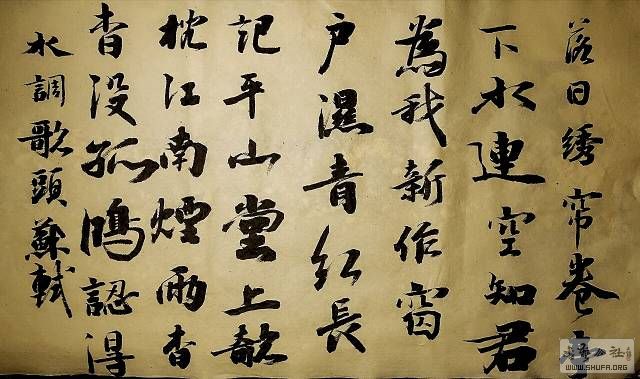 落日绣帘卷
下水連空知君
為我新作窗
户濕青红長
記平山堂上欹
枕江南煙雨杳
杳没孤鴻認得
水調歌頭蘇軾
公社
WWW.SHUFA.ORG